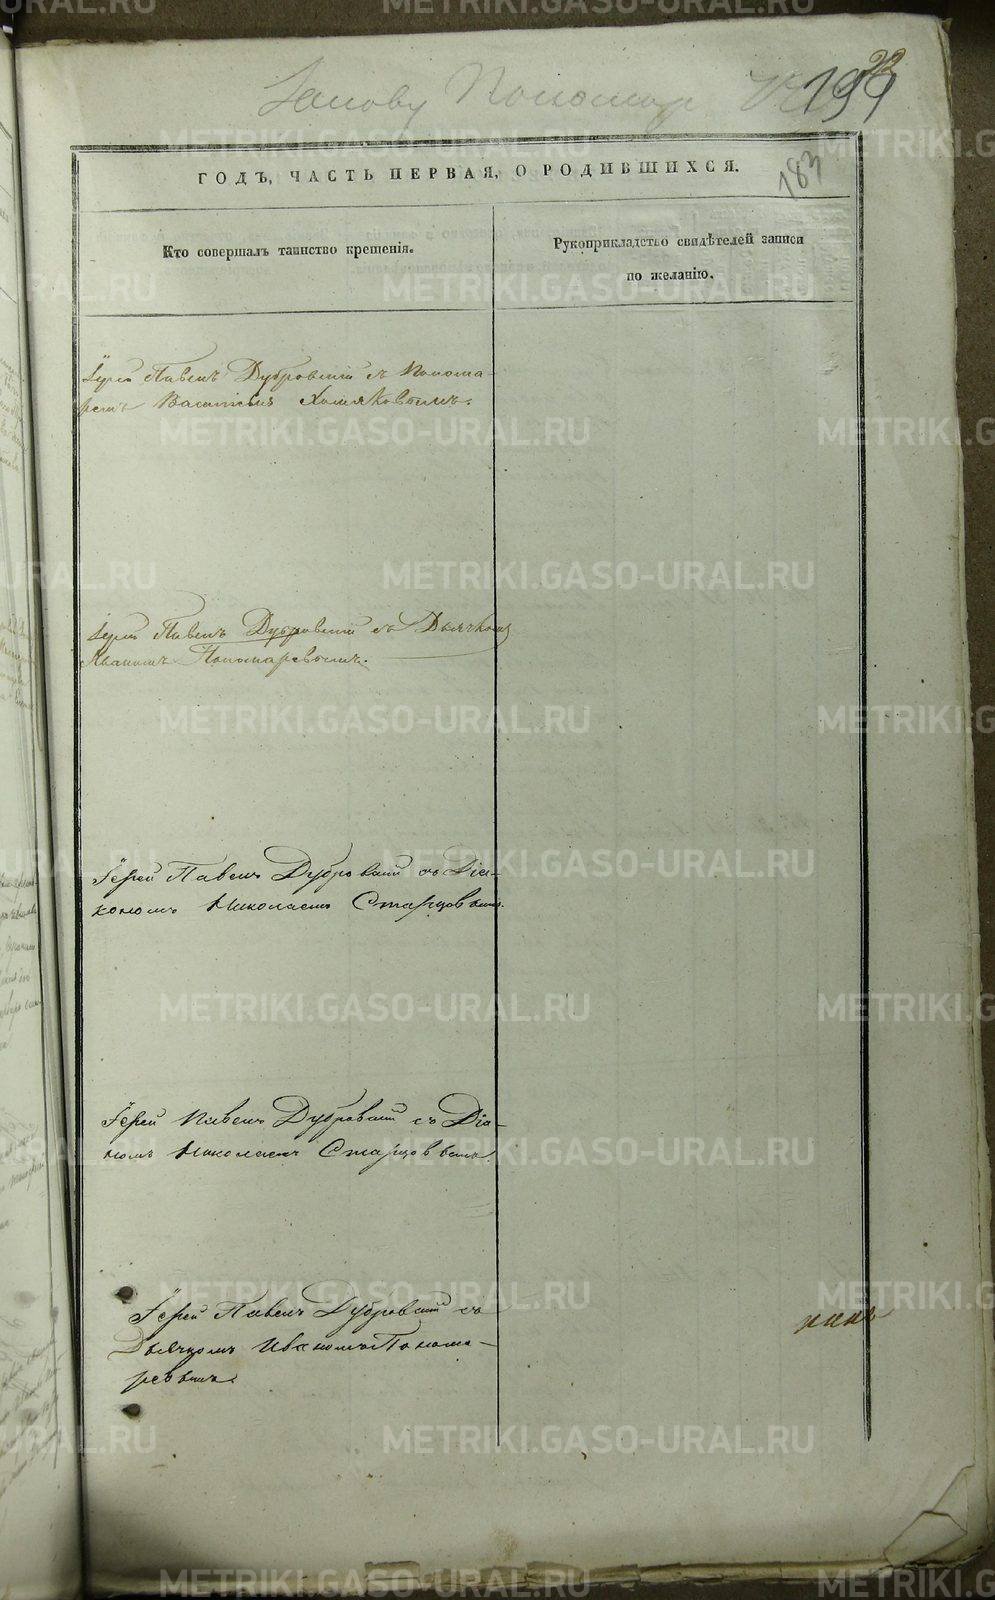 22
199
183
ГОДЪ, ЧАСТЬ ПЕРВАЯ, О РОДИВШИХСЯ.
Кто совершалъ таинство крещенія.
Рукоприкладство свидѣтелей записи
по желанію.
Іерей Павелъ Дубровскій съ Понома-
ремъ Василіемъ Хомяковымъ.
Іерей Павелъ Дубровскій съ Дьячкомъ
Иваномъ Пономаревымъ.
Іерей Павелъ Дубровскій съ Діа-
кономъ Николаемъ Старцовымъ.
Іерей Павелъ Дубровскій съ Діа-
комъ Николаемъ Старцовымъ.
Іерей Павелъ Дубровскій съ
Дьячкомъ Иваномъ Понома-
ревымъ.
METRIKI.GASO-URAL.RU